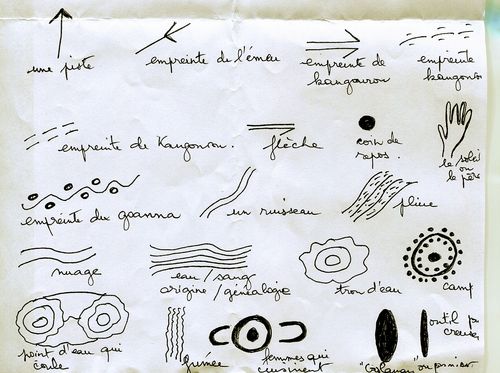 une piste
empreinte de l'émeu
empreinte de
kangourou
empreinte
kangourou
empreinte de Kangourou.
flèche
coin de
repos.
le soleil
ou
le père
empreinte du goanna
un ruisseau
pluie
nuage
eau/sang
origine/généalogie
trou d'eau
camp
point d'eau qui
coule
fumée
femmes qui
cuisinent
"Colaman" ou panier
outil p
creuser